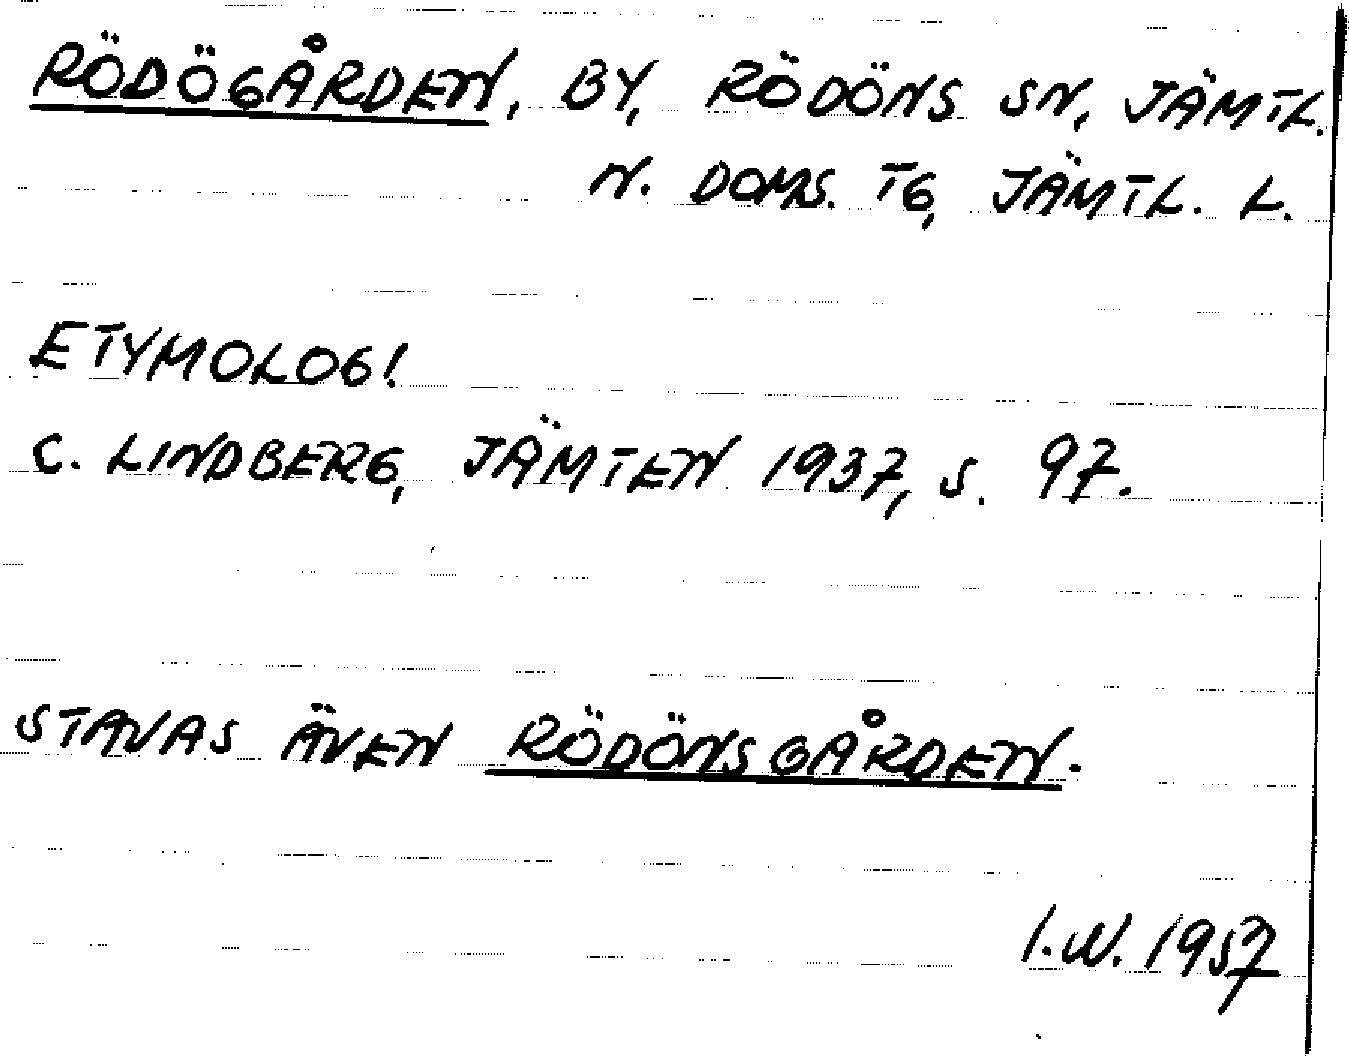 RÖDÖGÅRDEN, BY, RÖDÖNS SN, JÄMTL.
N. DOMS. TG, JÄMTL. L.
ETYMOLOG!
C. LINDBERG, JÄMTEN 1937, S. 97.
STAVAS ÄVEN RÖDÖNSGÅRDEN.
I.W. 1957